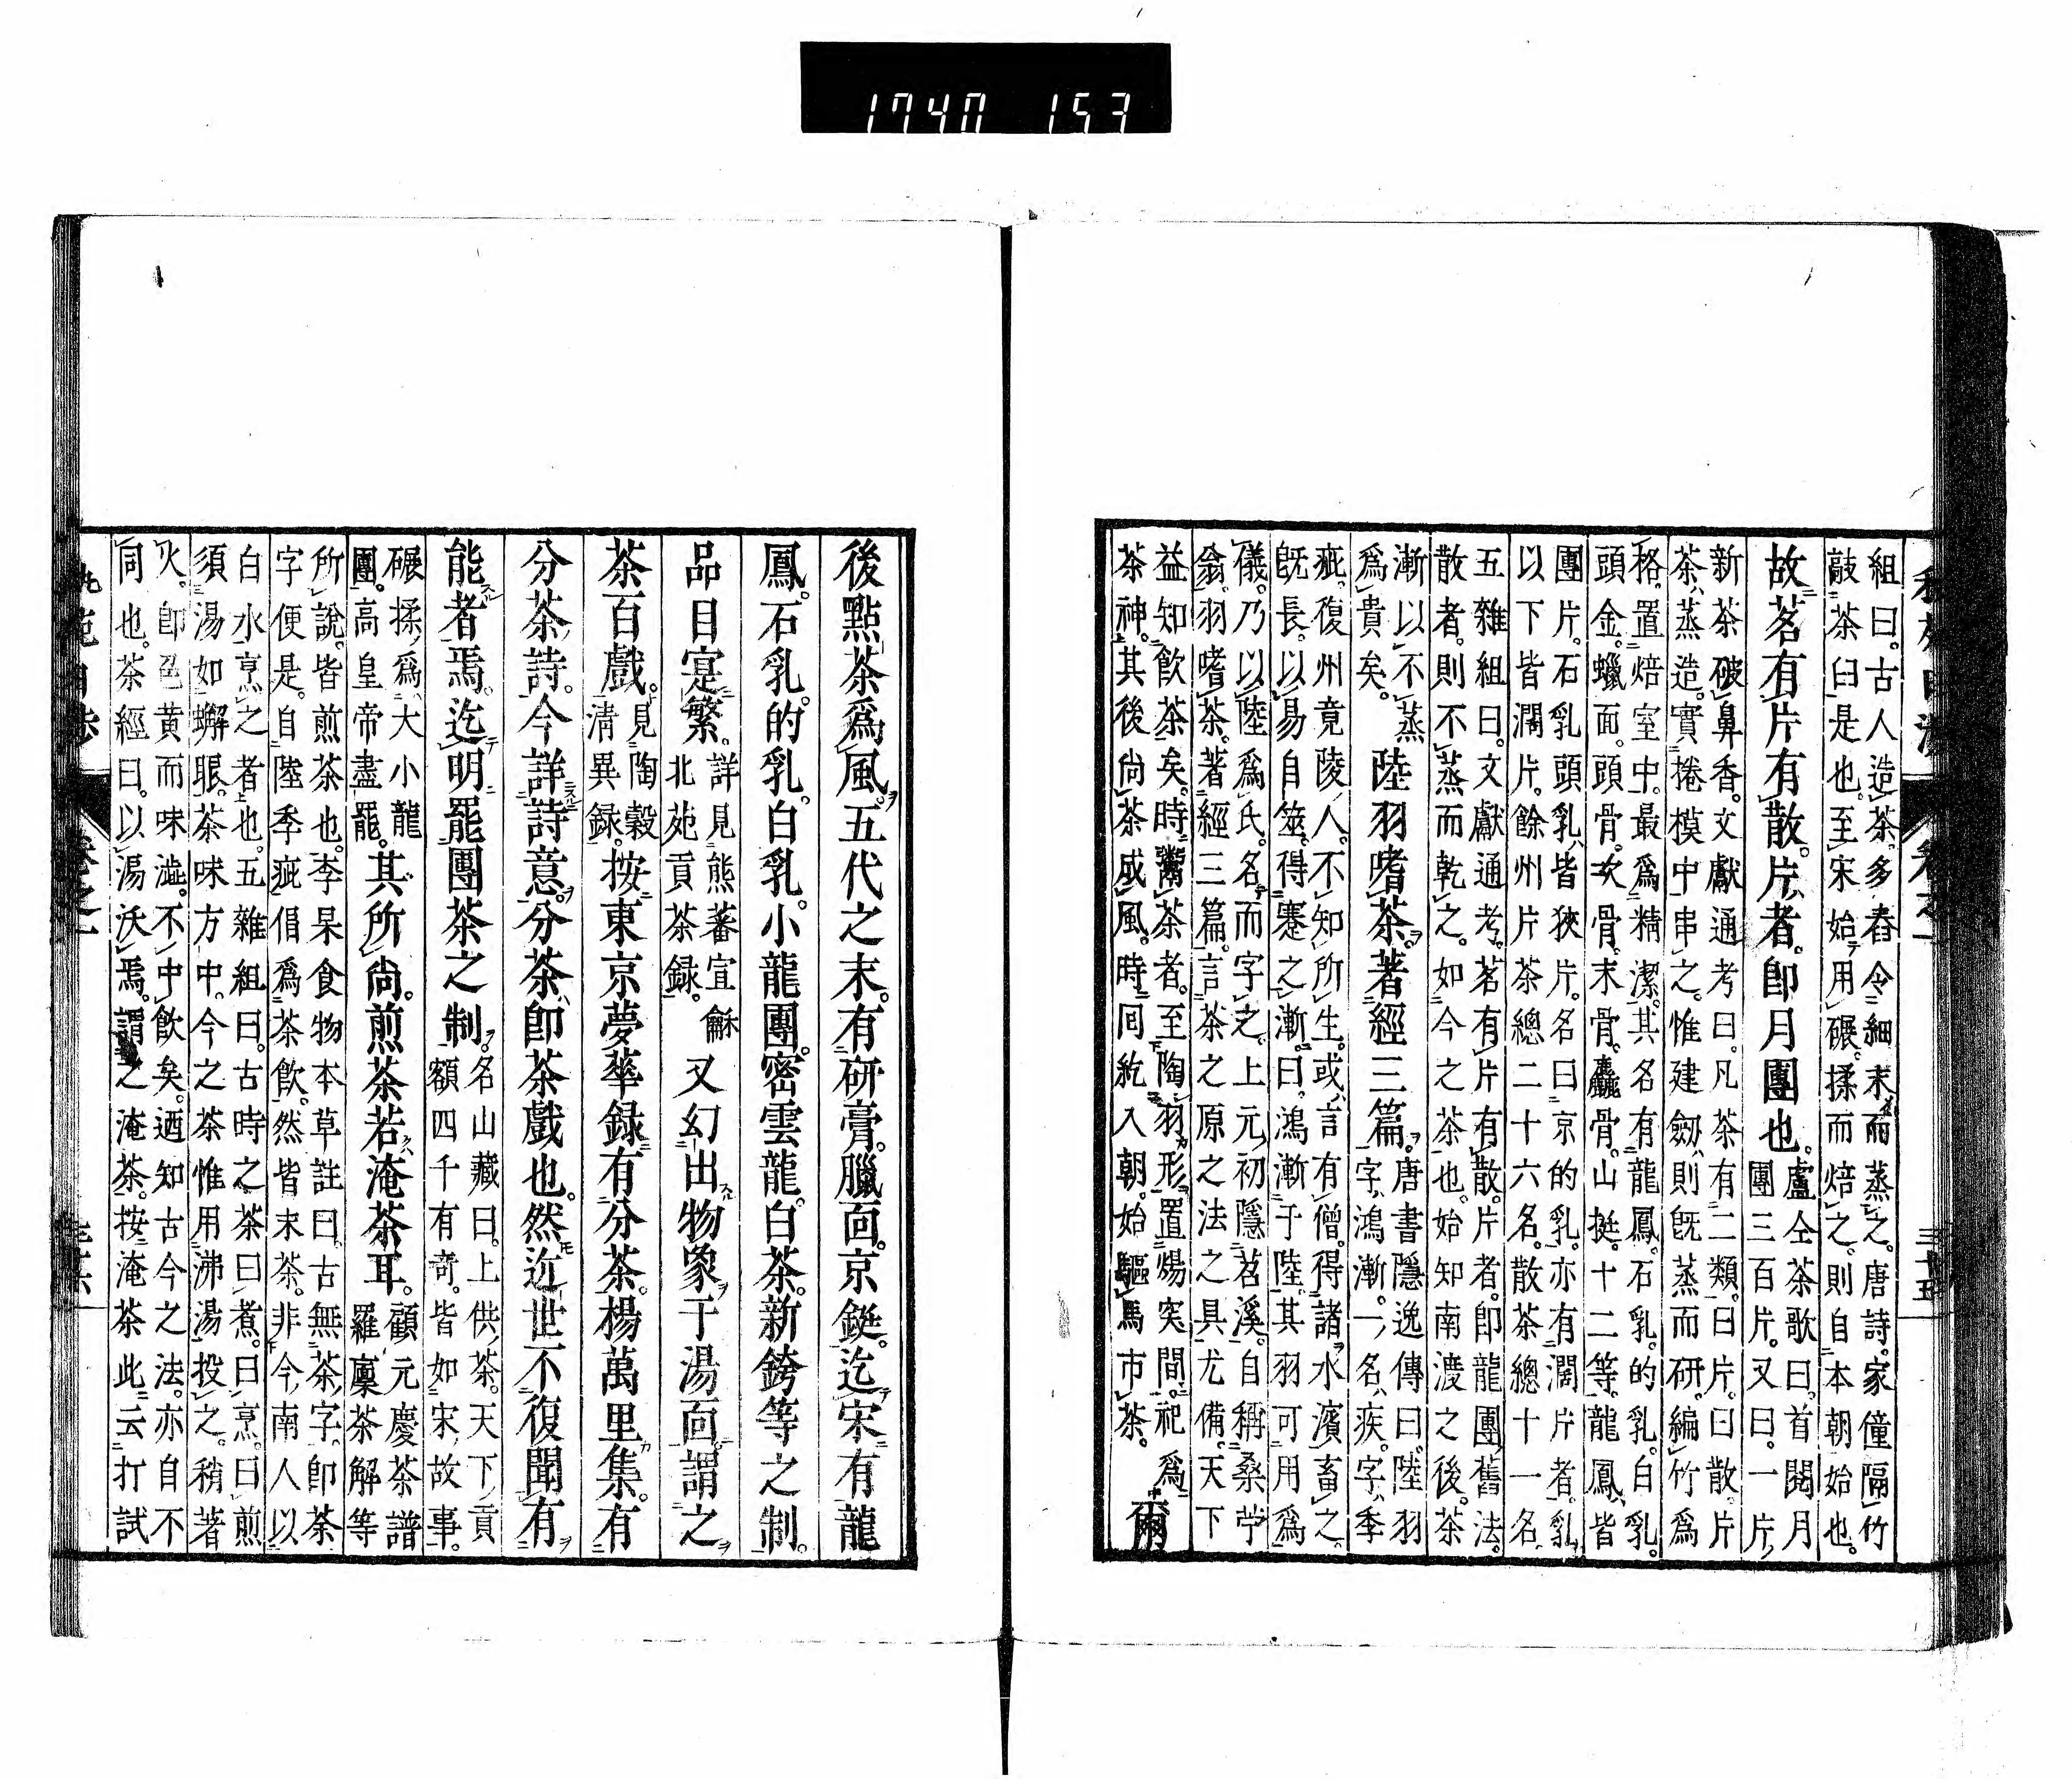 1740 153
組曰。古人造茶多舂令細末而蒸之。唐詩。家僮隔竹
敲茶臼是也。至宋始用碾。揉而焙之。則自本朝始也。
故茗有片有散。片者。卽月團也。
盧仝茶歌曰。首閱月
團三百片。又曰。一片
新茶破鼻香。文獻通考曰。凡茶有二類。曰片。曰散。片
茶蒸造。實捲模中串之。惟建劒則旣蒸而研。編竹爲
格。置焙室中。最爲精潔。其名有龍鳳。石乳。的乳。白乳。
頭金。蠟面。頭骨。次骨。末骨。麤骨。山挺。十二等。龍鳳皆
團片。石乳頭乳皆狹片。名曰京的乳。亦有濶片者。乳
以下皆濶片。餘州片茶總二十六名。散茶總十一名
五雜組曰。文獻通考。茗有片有散。片者。卽龍團舊法。
散者。則不蒸而乾之。如今之茶也。始知南渡之後。茶
漸以不蒸
爲貴矣。
陸羽嗜茶。著經三篇。
唐書隱逸傳曰。陸羽
字鴻漸。一名疾。字季
疵。復州竟陵人。不知所生。或言有僧。得諸水濱畜之。
旣長。以易自筮。得蹇之漸。曰。鴻漸于陸。其羽可用爲
儀。乃以陸爲氏。名而字之。上元初隱苕溪。自稱桑苧
翁。羽嗜茶。著經三篇。言茶之原之法之具尤備。天下
益知飲茶矣。時鬻茶者。至陶羽形置煬突間。祀爲
茶神。其後尙茶成風。時回紇入朝。始驅馬市茶。
爾
後點茶爲風。五代之末。有研膏。臘面。京鋌。迄宋有龍
鳳。石乳。的乳。白乳。小龍團。密雲龍。白茶。新銙等之制。
品目寔繁。
詳見熊蕃宣龢
北苑貢茶録。
又幻出物象于湯面。謂之
茶百戲。
見陶穀
淸異録。
按東京夢華録有分茶。楊萬里集。有
分茶詩。今詳詩意。分茶卽茶戲也。然近世不復聞有
能者焉。迄明罷團茶之制。
名山藏曰。上供茶。天下貢
額四千有奇。皆如宋故事。
碾揉爲大小龍
團。高皇帝盡罷。
其所尙。煎茶若淹茶耳。
顧元慶茶譜
羅廩茶解等
所說。皆煎茶也。李杲食物本草註曰。古無茶字。卽荼
字便是。自陸季疵借爲茶飲。然皆末茶。非今南人以
白水烹之者也。五雜組曰。古時之茶曰煮。曰烹。曰煎
須湯如蟹眼。茶味方中。今之茶惟用沸湯投之。稍著
火。卽色黄而味澁。不中飲矣。迺知古今之法。亦自不
同也。茶經曰。以湯沃焉。謂之淹茶。按淹茶此云打試
卷之一
三十五